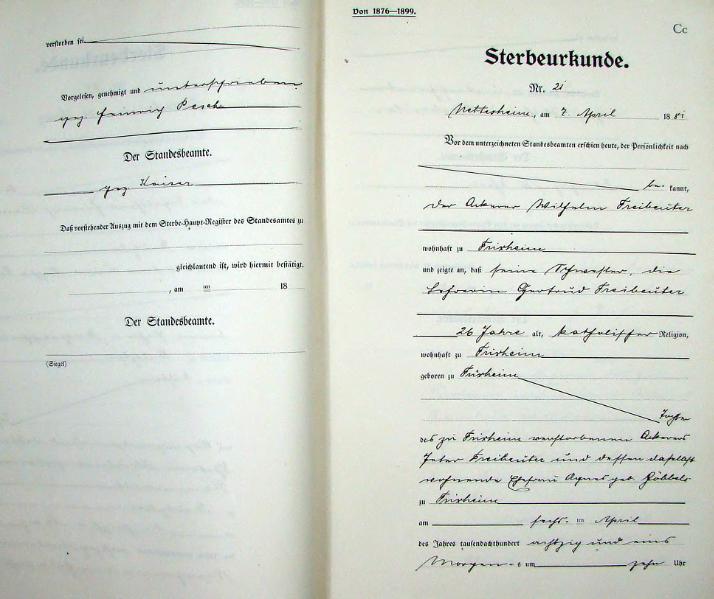 verstorben sei.
Vorgelesen, genehmigt und unterschrieben
gez Heinrich Pesch
Der Standesbeamte.
gez Kaiser
Daß vorstehender Auszug mit dem Sterbe-Haupt-Register des Standesamtes zu
gleichlautend ist, wird hiermit bestätigt.
, am ten 18
Der Standesbeamte.
(Siegel)
Von 1876—1899.
Cc
Sterbeurkunde.
Nr. 21
Nettersheim, am 7 April 1881
Vor dem unterzeichneten Standesbeamten erschien heute, der Persönlichkeit nach
be- kannt,
der Ackerer Wilhelm Freibeuter
wohnhaft zu Frixheim
und zeigte an, daß seine Schwester, die
Lehrerin Gertrud Freibeuter
26 Jahre alt, katholischer Religion,
wohnhaft zu Frixheim
geboren zu Frixheim
Tochter
des zu Frixheim verstorbenen Ackerers
Peter Freibeuter und dessen daselbst
wohnende Ehefrau Agnes geb Göbbels
zu Frixheim
am sechs- ten April
des Jahres tausendachthundert achtzig und eins
Morgens um zehn Uhr